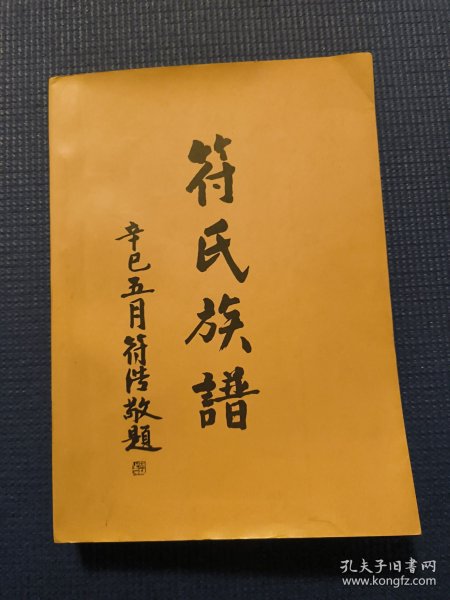 符氏族譜
辛巳五月符浩敬題
孔夫子旧书网
www.kongfz.com